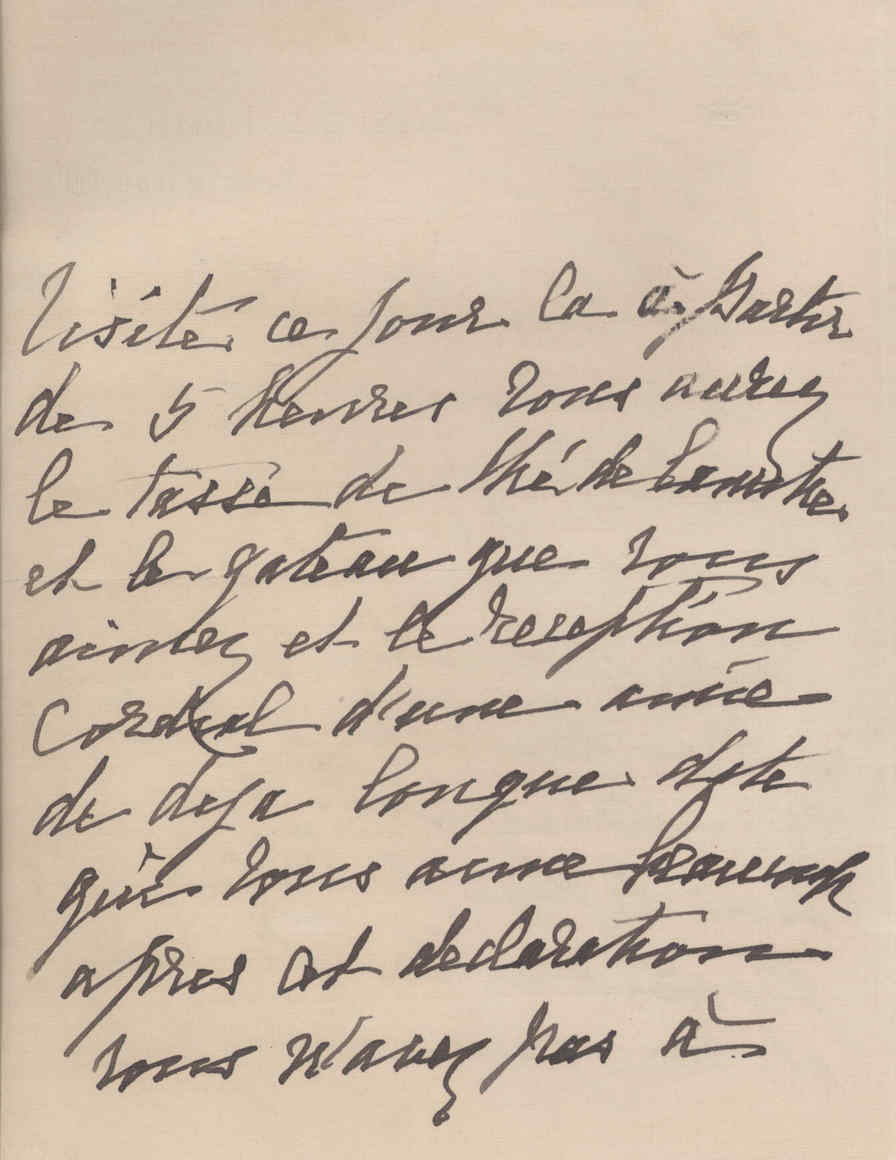 visite ce jour la à partir
de 5 heures vous aurez
le tassé de thé de
et le gateau que vous
aimez et le reception
Cordial d'une amie
de deja longue date
qui vous aime beaucoup
apres cet declaration
vous n'avez pas à